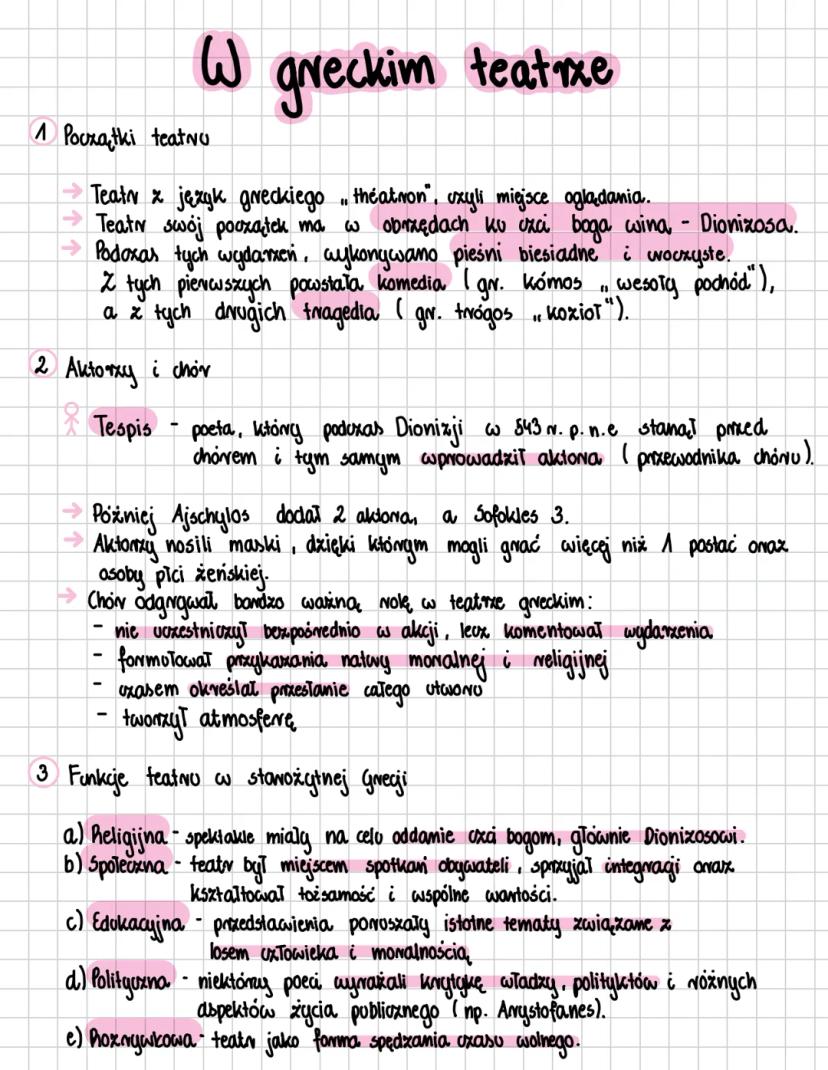 W greckim teatrze
1 Początki teatru
→ Teatr z język greckiego „théatron", czyli miejsce oglądania.
→ Teatr swój początek ma w obrzędach ku czci boga wina - Dionizosa.
→ Podczas tych wydarzeń, wykonywano pieśni biesiadne i uroczyste.
Z tych pierwszych powstała komedia (gr. kómos „wesoły pochód"),
a z tych drugich tragedia (gr. trógos „kozioł").
2 Aktorzy i chór
Tespis - poeta, który podczas Dionizji w 543 r. p.n.e stanął przed
chórem i tym samym wprowadził aktora (przewodnika chóru).
→ Później Ajschylos dodał 2 aktora, a Sofokles 3.
→ Aktorzy nosili maski, dzięki którym mogli grać więcej niż 1 postać oraz
osoby płci żeńskiej.
→ Chór odgrywał bardzo ważną rolę w teatrze greckim:
- nie uczestniczył bezpośrednio w akcji, lecz komentował wydarzenia
- formułował przykazania natury moralnej i religijnej
- czasem określał przesłanie całego utworu
- tworzył atmosferę
3 Funkcje teatru w starożytnej Grecji
a) Religijna - spektakle miały na celu oddanie czci bogom, głównie Dionizosowi.
b) Społeczna - teatr był miejscem spotkań obywateli, sprzyjał integracji oraz
kształtował tożsamość i wspólne wartości.
c) Edukacyjna - przedstawienia poruszały istotne tematy związane z
losem człowieka i moralnością
d) Polityczna - niektórzy poeci wyrażali krytykę władzy, polityków i różnych
aspektów życia publicznego (np. Arystofanes).
e) Rozrywkowa - teatr jako forma spędzania czasu wolnego.